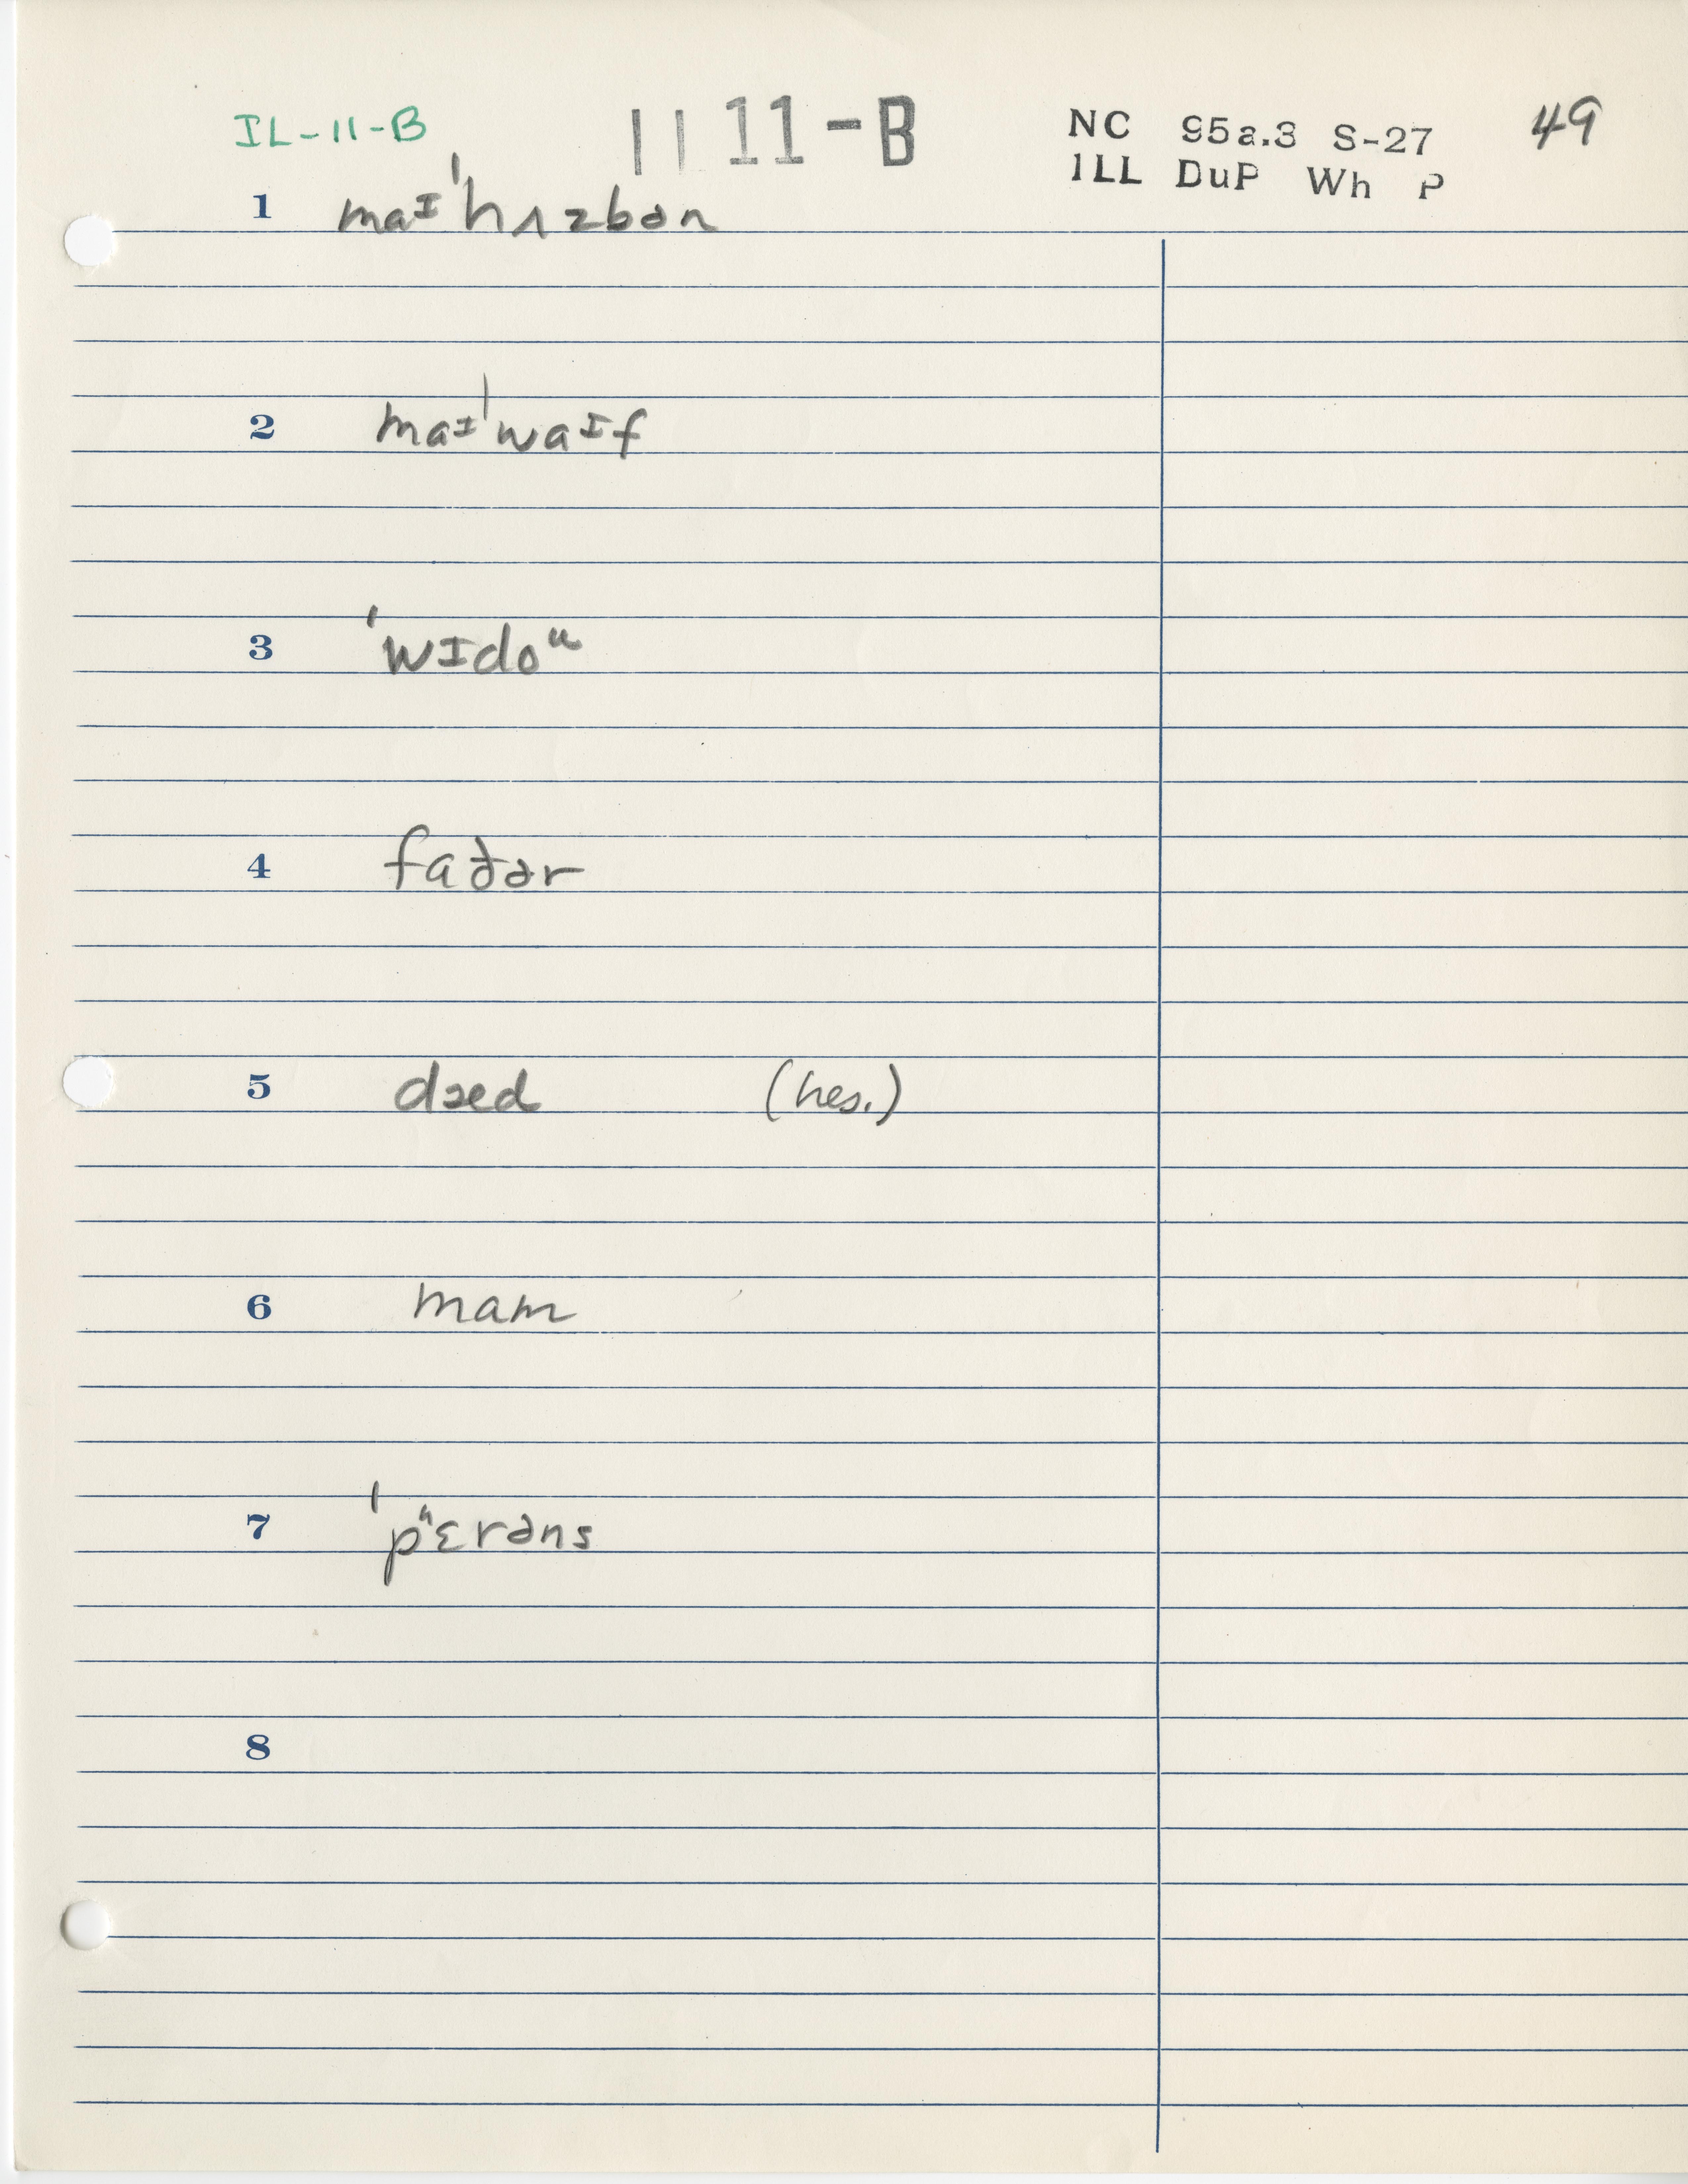 IL-11-B 11 11-B NC 95a.3 S-27 49
ILL DuP Wh P
1 maɪˈhʌzbən
2 maɪˈwaɪf
3 ˈwɪdoᵘ
4 faðər
5 dæed (hes.)
6 mam
7 ˈpʰɛrəns
8